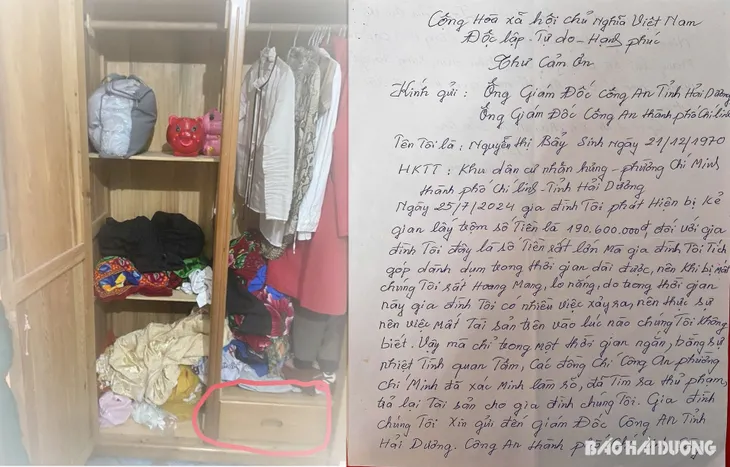 Cộng Hòa xã hội chủ Nghĩa Việt Nam
Độc lập - Tự do - Hạnh phúc
Thư Cảm Ơn
Kính gửi : Ông Giám Đốc Công An Tỉnh Hải Dương
Ông Giám Đốc Công An thành phố Chí linh
Tên Tôi là : Nguyễn Thị Bẩy Sinh Ngày 21/12/1970
HKTT : Khu dân cư nhân hưng - phường Chí Minh
thành phố Chí linh - Tỉnh Hải Dương
Ngày 25/7/2024 gia đình Tôi phát Hiện bị Kẻ
gian lấy trộm số Tiền là 190.600.000đ, đối với gia
đình Tôi đây là số Tiền rất lớn Mà gia đình Tôi Tích
góp dành dụm trong thời gian dài được, nên khi bị Mất
chúng Tôi rất Hoang Mang, lo nắng, do trong thời gian
này gia đình Tôi có nhiều việc xảy ra, nên thực sự
nên việc mất Tài sản trên vào lúc nào chúng Tôi không
biết. Vậy mà chỉ trong một thời gian ngắn, bằng sự
nhiệt Tình quan Tâm, Các đồng Chí Công An phường
Chí Minh đã xác Minh làm rõ, đã Tìm ra thủ phạm,
trả lại Tài sản cho gia đình chúng Tôi. Gia đình
chúng Tôi xin gửi đến giám Đốc Công An Tỉnh
Hải Dương. Công An thành phố
BÁO HẢI DƯƠNG